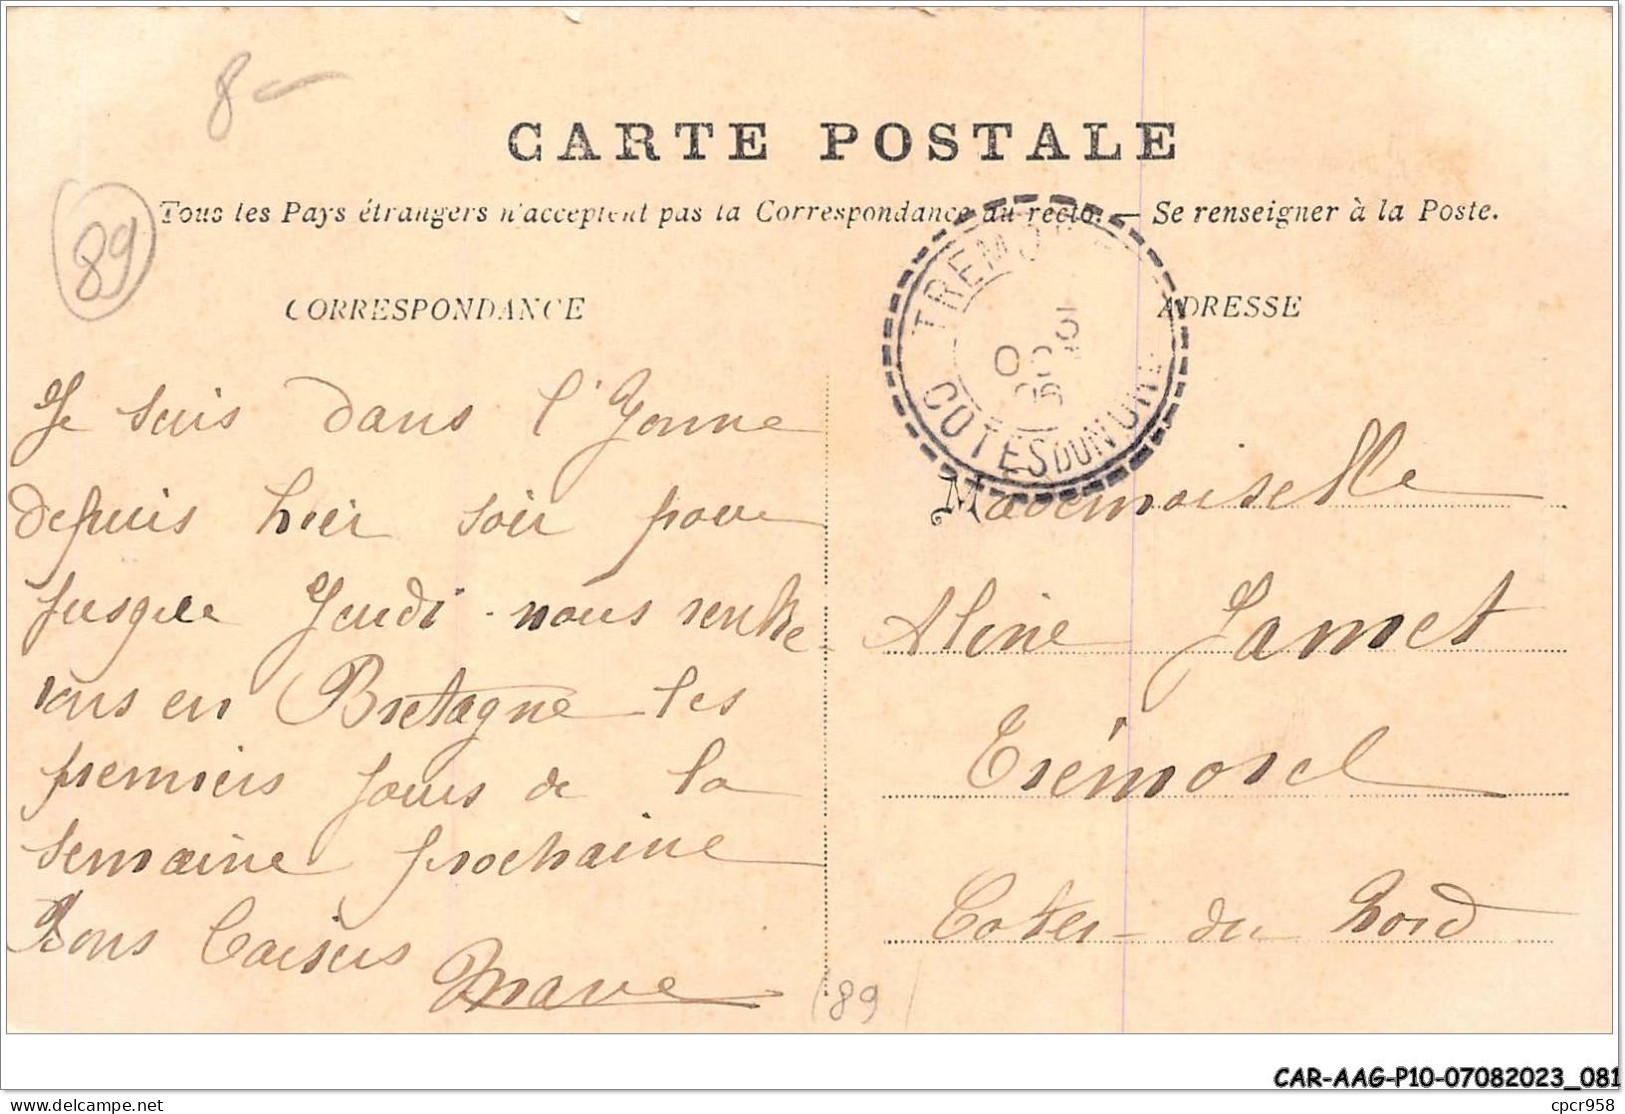 8 -
CARTE POSTALE
Tous les Pays étrangers n'acceptent pas la Correspondance au recto. — Se renseigner à la Poste.
89
CORRESPONDANCE
ADRESSE
COTES DU NORD
Je suis dans l'Yonne
depuis hier soir pour
jusque Jeudi - nous
en Bretagne les
premiers jours de la
semaine prochaine
Bons baisers
Mademoiselle
Aline Jamet
Trémorel
Cotes - du Nord
89
CAR-AAG-P10-07082023_081
www.delcampe.net
cpcr958